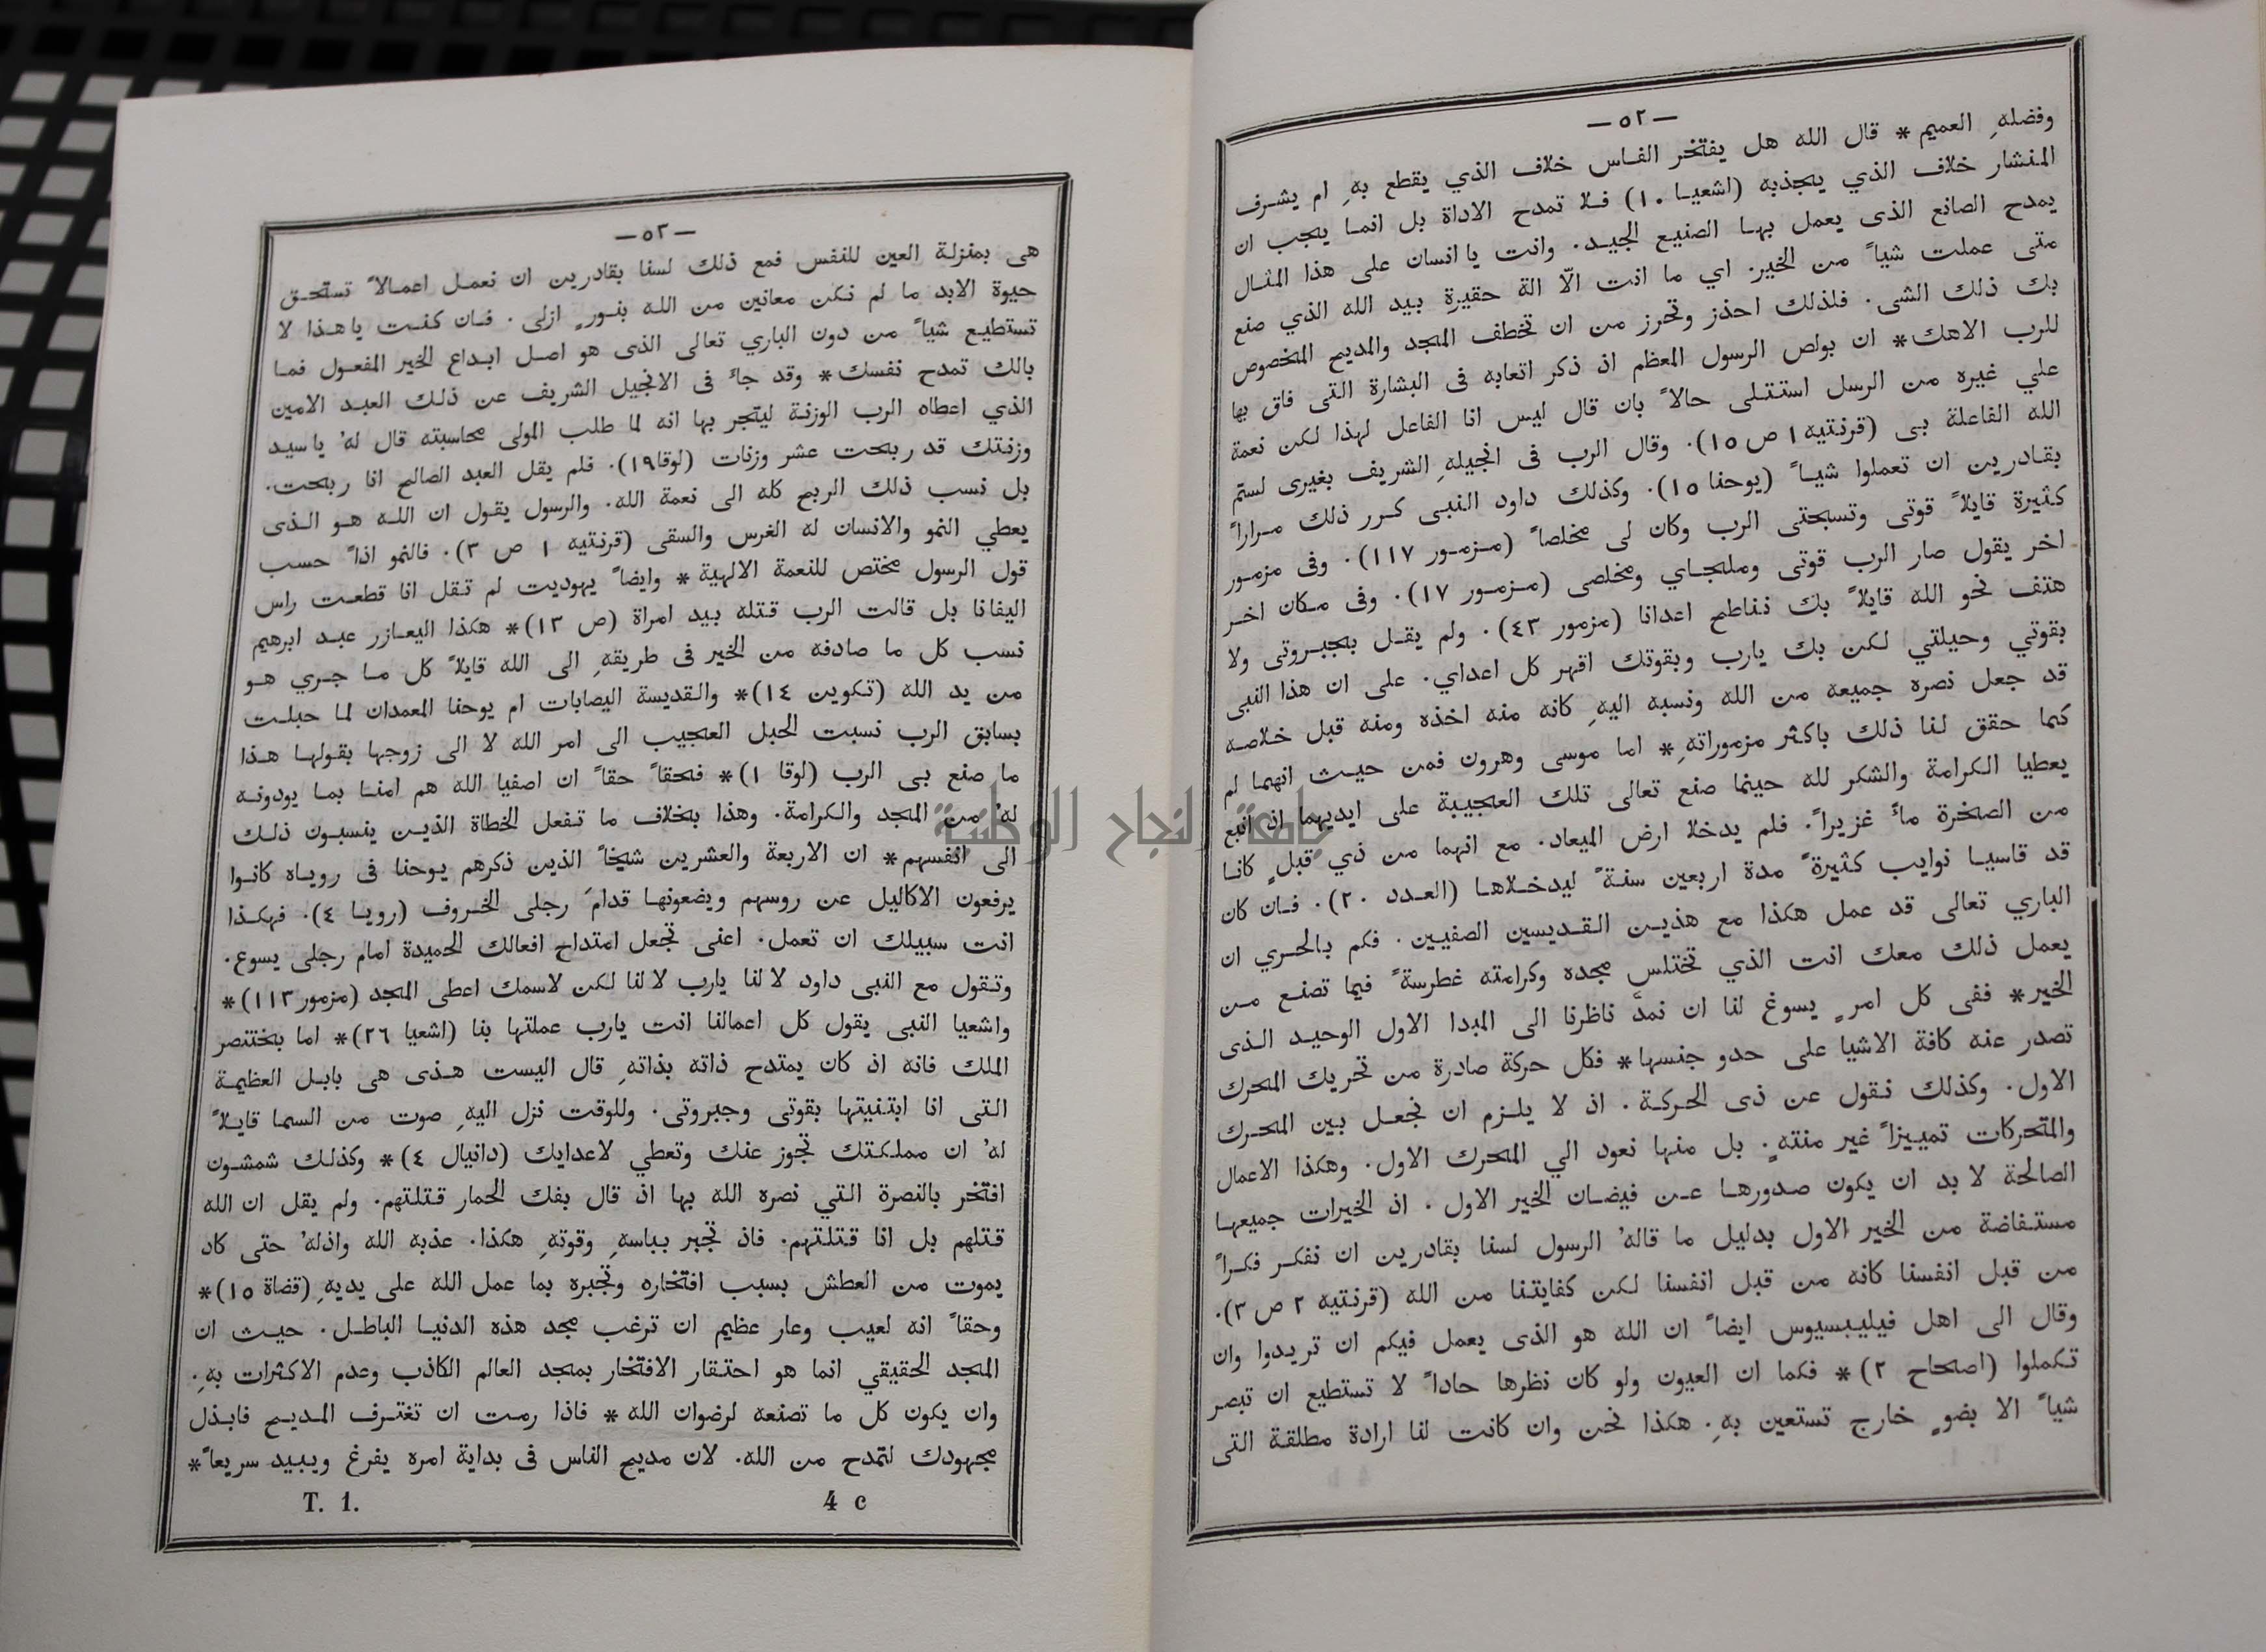 — ٥٢ —
وفضلهِ العميم * قال الله هل يفتخر الفاس خلاف الذي يقطع بهِ ام يشرف
المنشار خلاف الذي يجذبه (اشعيا ١٠) فلا تمدح الاداة بل انما يجب ان
يمدح الصانع الذى يعمل بها الصنيع الجيد. وانت يا انسان على هذا المثال
متى عملت شياً من الخير. اي ما انت الّا الة حقيرةٍ بيد الله الذي صنع
بك ذلك الشى. فلذلك احذز وتحرز من ان تخطف المجد والمديح المخصوص
للرب الاهك * ان بولص الرسول المعظم اذ ذكر اتعابه فى البشارة التى فاق بها
علي غيره من الرسل استتلى حالاً بان قال ليس انا الفاعل لهذا لكن نعمة
الله الفاعلة بى (قرنتيه ١ ص ١٥). وقال الرب فى انجيلهِ الشريف بغيرى لستم
بقادرين ان تعملوا شياً (يوحنا ١٥). وكذلك داود النبى كرر ذلك مراراً
كثيرة قايلاً قوتى وتسبحتى الرب وكان لى مخلصاً (مزمور ١١٧). وفى مزمور
اخر يقول صار الرب قوتى وملجاي ومخلصى (مزمور ١٧). وفى مكان اخر
هتف نحو الله قايلاً بك نناطح اعدانا (مزمور ٤٣). ولم يقل بجبروتى ولا
بقوتي وحيلتي لكن بك يارب وبقوتك اقهر كل اعداي. على ان هذا النبى
قد جعل نصره جميعه من الله ونسبه اليهِ كانه منه اخذه ومنه قبل خلاصه
كما حقق لنا ذلك باكثر مزموراتهِ * اما موسى وهرون فمن حيث انهما لم
يعطيا الكرامة والشكر لله حينما صنع تعالى تلك العجيبة على ايديهما اذ انبع
من الصخرة مأً غزيراً. فلم يدخلا ارض الميعاد. مع انهما من ذي قبلٍ كانا
قد قاسيا نوايب كثيرةً مدة اربعين سنةً ليدخلاها (العدد ٢٠). فان كان
الباري تعالى قد عمل هكذا مع هذين القديسين الصفيين. فكم بالحري ان
يعمل ذلك معك انت الذي تختلس مجده وكرامته غطرسةً فيما تصنع من
الخير * ففى كل امرٍ يسوغ لنا ان نمدّ ناظرنا الى المبدا الاول الوحيد الذى
تصدر عنه كافة الاشيا على حدو جنسها * فكل حركة صادرة من تحريك المحرك
الاول. وكذلك نقول عن ذى الحركة. اذ لا يلزم ان نجعل بين المحرك
والمتحركات تمييزاً غير منتهٍ. بل منها نعود الي المحرك الاول. وهكذا الاعمال
الصالحة لا بد ان يكون صدورها عن فيضان الخير الاول. اذ الخيرات جميعها
مستفاضة من الخير الاول بدليل ما قالهُ الرسول لسنا بقادرين ان نفكر فكراً
من قبل انفسنا كانه من قبل انفسنا لكن كفايتنا من الله (قرنتيه ٢ ص ٣).
وقال الى اهل فيليبسيوس ايضاً ان الله هو الذى يعمل فيكم ان تريدوا وان
تكملوا (اصحاح ٢) * فكما ان العيون ولو كان نظرها حاداً لا تستطيع ان تبصر
شياً الا بضوٍ خارج تستعين بهِ. هكذا نحن وان كانت لنا ارادة مطلقة التى
— ٥٣ —
هى بمنزلة العين للنفس فمع ذلك لسنا بقادرين ان نعمل اعمالاً تستحق
حيوة الابد ما لم نكن معانين من الله بنورٍ ازلى. فان كنت يا هذا لا
تستطيع شياً من دون الباري تعالى الذى هو اصل ابداع الخير المفعول فما
بالك تمدح نفسك * وقد جأ فى الانجيل الشريف عن ذلك العبد الامين
الذي اعطاه الرب الوزنة ليتجر بها انه لما طلب المولى محاسبته قال لهُ يا سيد
وزنتك قد ربحت عشر وزنات (لوقا ١٩). فلم يقل العبد الصالح انا ربحت.
بل نسب ذلك الربح كله الى نعمة الله. والرسول يقول ان الله هو الذى
يعطي النمو والانسان له الغرس والسقى (قرنتيه ١ ص ٣). فالنمو اذاً حسب
قول الرسول مختص للنعمة الالهية * وايضاً يهوديت لم تقل انا قطعت راس
اليفانا بل قالت الرب قتله بيد امراة (ص ١٣) * هكذا اليعازر عبد ابرهيم
نسب كل ما صادفه من الخير فى طريقهِ الى الله قايلاً كل ما جري هو
من يد الله (تكوين ١٤) * والقديسة اليصابات ام يوحنا المعمدان لما حبلت
بسابق الرب نسبت الحبل العجيب الى امر الله لا الى زوجها بقولها هذا
ما صنع بى الرب (لوقا ١) * فحقاً حقاً ان اصفيا الله هم امنا بما يودونه
لهُ من المجد والكرامة. وهذا بخلاف ما تفعل الخطاة الذين ينسبون ذلك
الى انفسهم * ان الاربعة والعشرين شيخاً الذين ذكرهم يوحنا فى روياه كانوا
يرفعون الاكاليل عن روسهم ويضعونها قدامَ رجلى الخروف (رويا ٤). فهكذا
انت سبيلك ان تعمل. اعنى تجعل امتداح افعالك الحميدة امام رجلى يسوع.
وتقول مع النبى داود لا لنا يارب لا لنا لكن لاسمك اعطى المجد (مزمور ١١٣) *
واشعيا النبى يقول كل اعمالنا انت يارب عملتها بنا (اشعيا ٢٦) * اما بختنصر
الملك فانه اذ كان يمتدح ذاته بذاتهِ قال اليست هذى هى بابل العظيمة
التى انا ابتنيتها بقوتى وجبروتى. وللوقت نزل اليهِ صوت من السما قايلاً
لهُ ان مملكتك تجوز عنك وتعطي لاعدايك (دانيال ٤) * وكذلك شمشون
افتخر بالنصرة التي نصره الله بها اذ قال بفك الحمار قتلتهم. ولم يقل ان الله
قتلهم بل انا قتلتهم. فاذ تجبر بباسهِ وقوتهِ هكذا. عذبه الله واذلهُ حتى كاد
يموت من العطش بسبب افتخاره وتجبره بما عمل الله على يديهِ (قضاة ١٥) *
وحقاً انه لعيب وعار عظيم ان ترغب مجد هذه الدنيا الباطل. حيث ان
المجد الحقيقي انما هو احتقار الافتخار بمجد العالم الكاذب وعدم الاكثرات بهِ.
وان يكون كل ما تصنعه لرضوان الله * فاذا رمت ان تغترف المديح فابذل
مجهودك لتمدح من الله. لان مديح الناس فى بداية امره يفرغ ويبيد سريعاً *
T. 1. 4 c
جامعة النجاح الوطنية